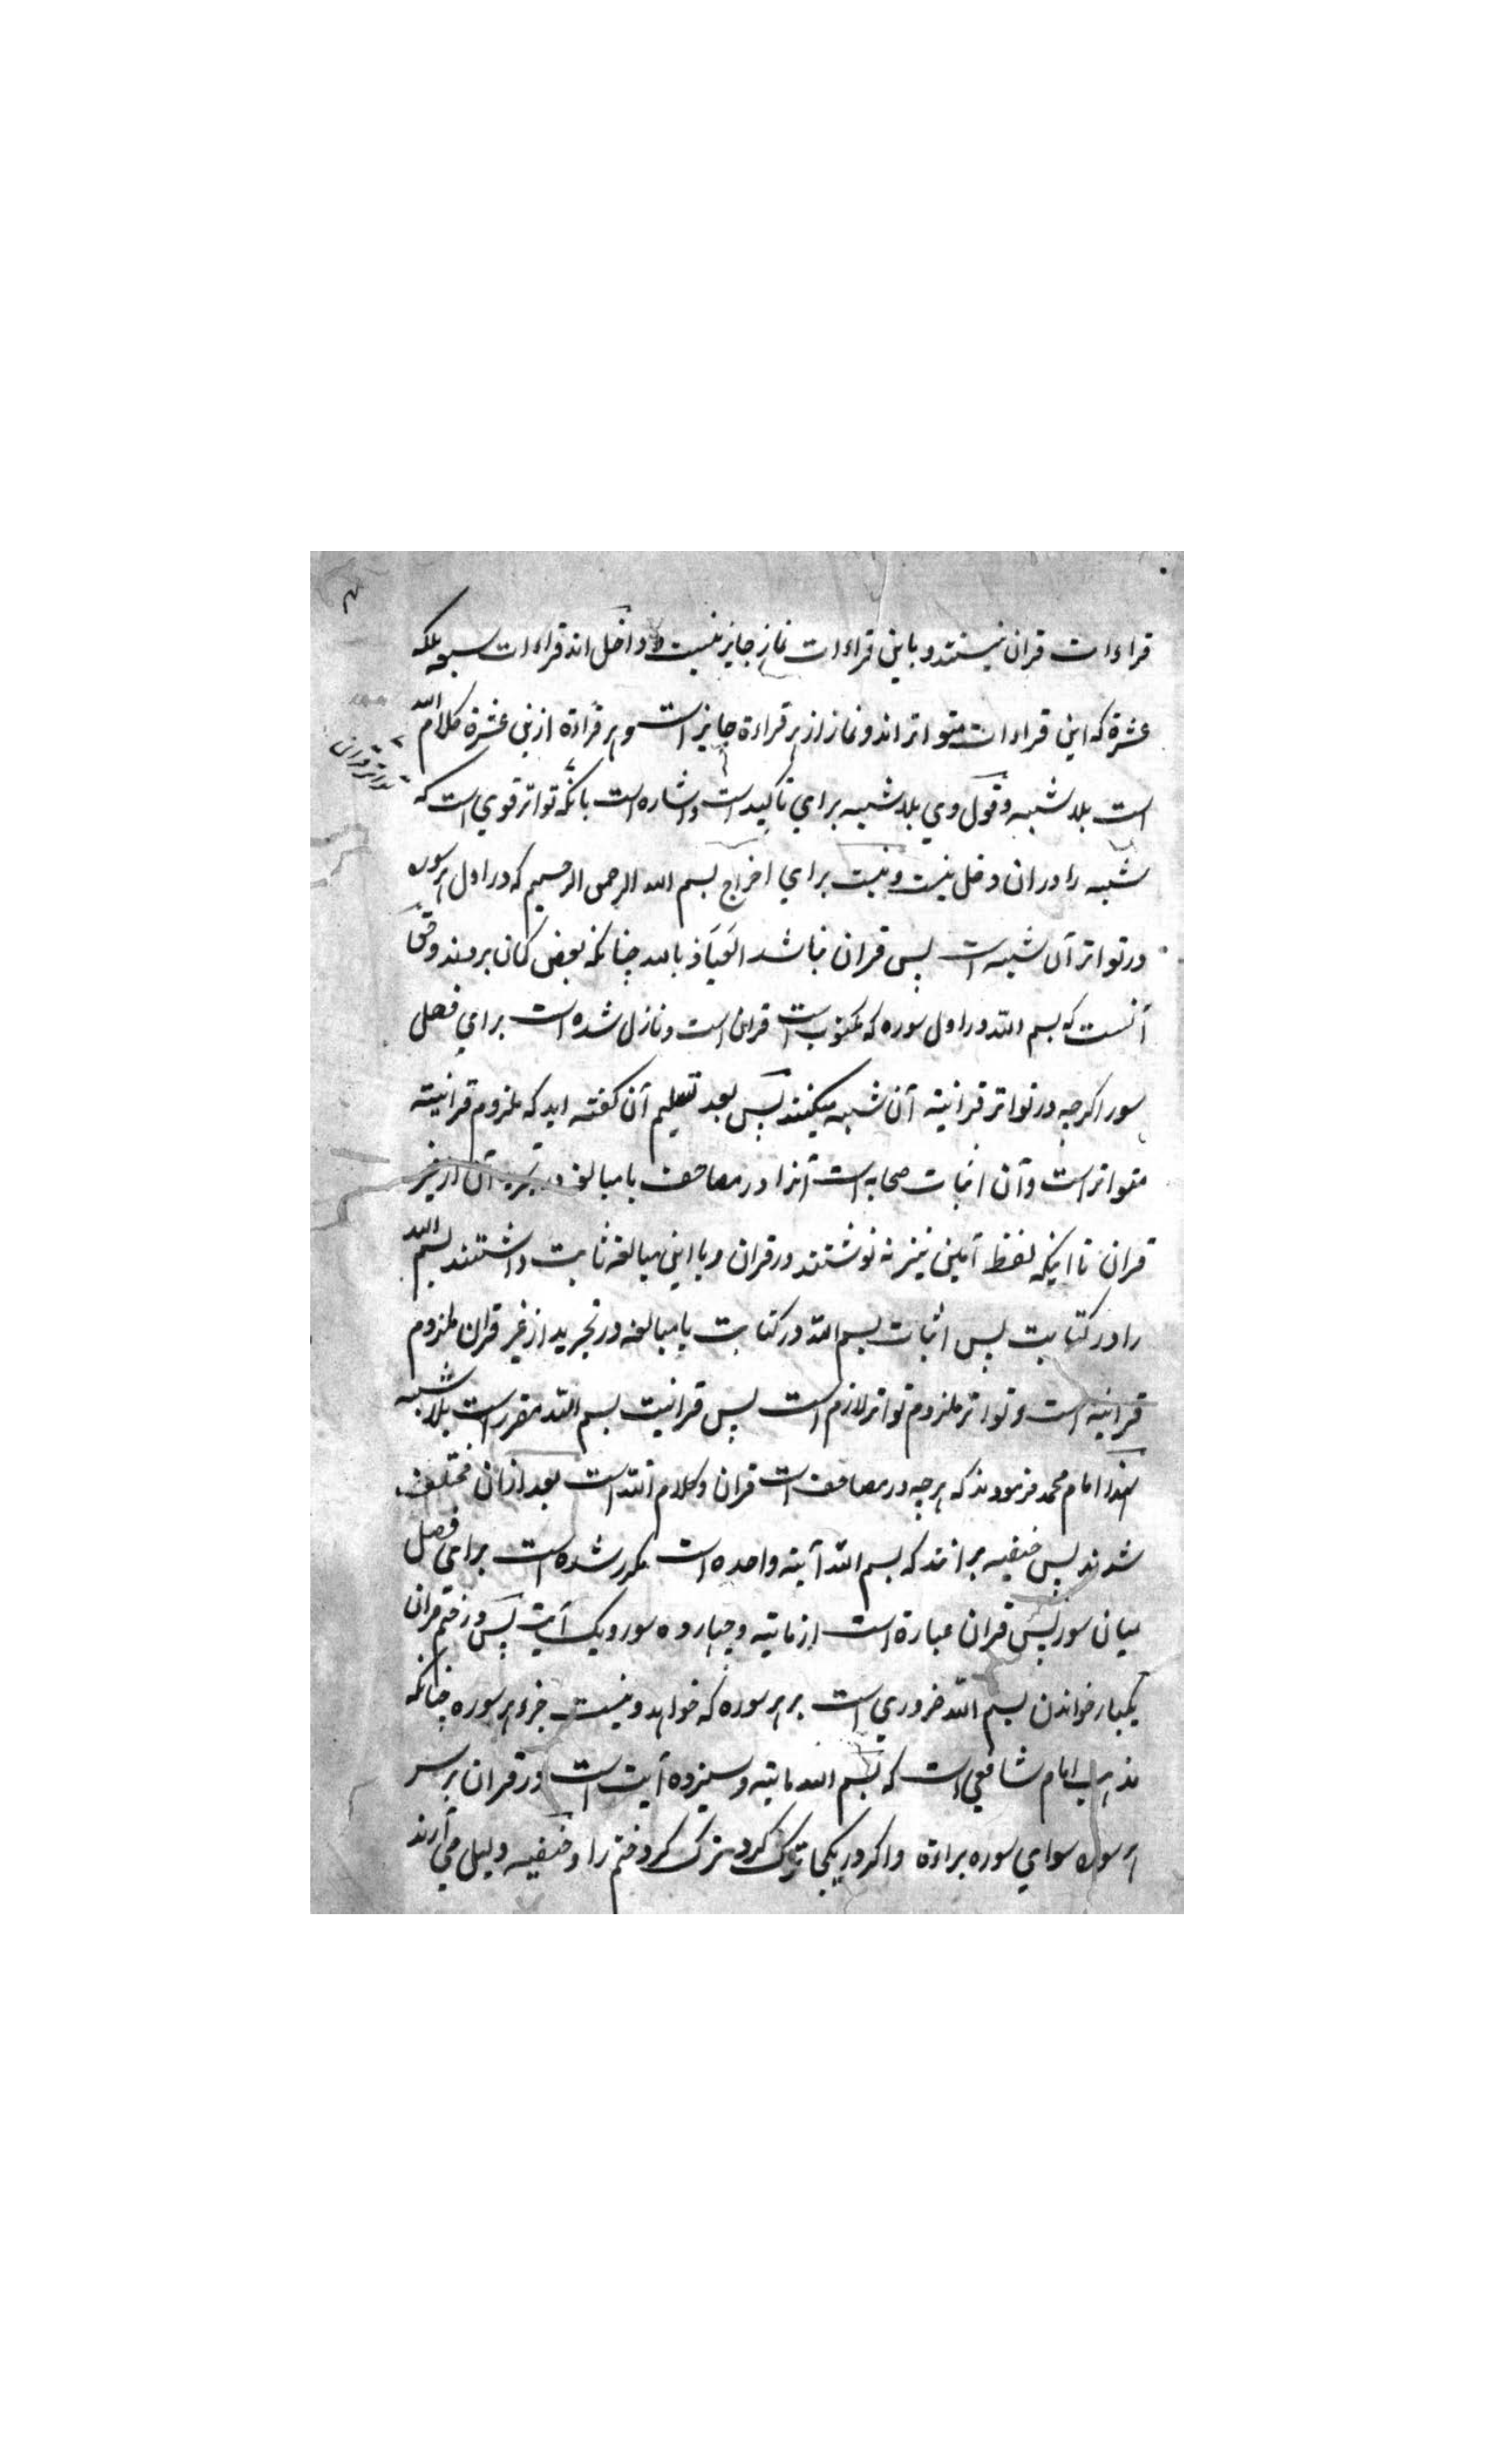 قراءات قران نیستند و باین قراءات نماز جایز نیست و داخل اند قراءات سبعه بلکه
عشرة که این قراءات متواتر اند و نماز از هر قراءة جایز است و هر قراءة ازین عشرة کلام الله
است بلا شبهه و قول وی بلا شبهه برای تاکید است و اشاره است بانکه تواتر قوی است که
شبهه را دران دخل نیست و نیست برای اخراج بسم الله الرحمن الرحیم که در اول هر سوره
در تواتر آن شبهه است پس قران نباشد العیاذ بالله چنانکه بعض کمان بردند و حق
آنست که بسم الله در اول سوره که مکتوب است قران است و نازل شده است برای فصل
سور اکرچه در تواتر قرانیة آن شبهه میکنند پس بعد تسلیم آن کفته اید که ملزوم قرانیته
متواتر است و آن اثبات صحابه است آنرا در مصاحف با مبالغه در آن از غیر
قران تا اینکه لفظ آمین نیز نه نوشتند در قران و با این مبالغه ثابت داشتند بسم الله
را در کتابت پس اثبات بسم الله در کتابت با مبالغه در تجرید از غیر قران ملزوم
قرانیة است و تواتر ملزوم تواتر لازم است پس قرانیت بسم الله مقرر است بلا شبهه
لهذا امام محمد فرمودند که هرچه در مصاحف است قران و کلام الله است بعد ازان مختلف
شدند پس حنفیه برانند که بسم الله آیة واحده است مکرر شده است برای فصل
میان سور پس قران عبارة است از مائیه و چهارده سور و یک آیت پس در ختم قران
یکبار خواندن بسم الله ضروری است بر هر سوره که خواهد و نیست جزء هر سوره چنانکه
مذهب امام شافعی است که بسم الله مائیه و سیزده آیت است در قران بر سر
هر سوره سوای سوره براءة و اکر در یکجا ترک کرد ترک کرد ختم را و حنفیه دلیل می آرند